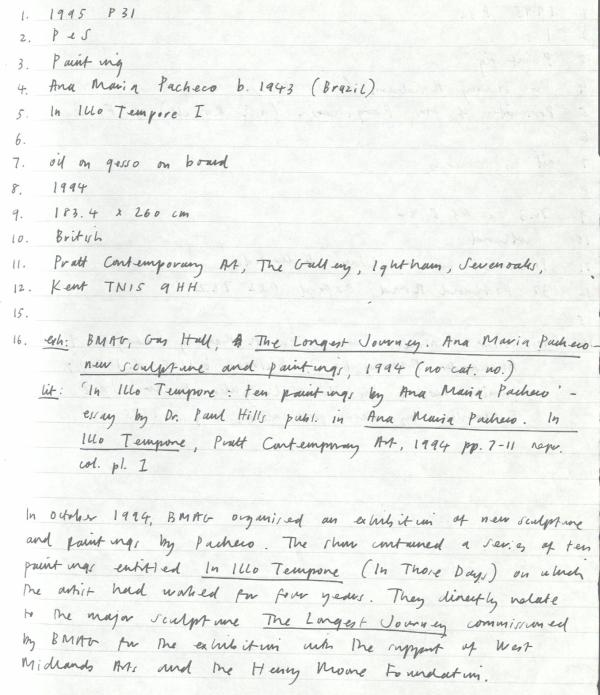 1. 1995 P31
2. P e S
3. Painting
4. Ana Maria Pacheco b. 1943 (Brazil)
5. In Illo Tempore I
6.
7. oil on gesso on board
8. 1994
9. 183.4 x 260 cm
10. British
11. Pratt Contemporary Art, The Gallery, Ightham, Sevenoaks,
12. Kent TN15 9HH
15.
16. exh: BMAG, Gas Hall, The Longest Journey. Ana Maria Pacheco -
new sculpture and paintings, 1994 (no cat. no.)
lit: 'In Illo Tempore: ten paintings by Ana Maria Pacheco' -
essay by Dr. Paul Hills publ. in Ana Maria Pacheco. In
Illo Tempore, Pratt Contemporary Art, 1994 pp. 7-11 repr.
col. pl. I
In October 1994, BMAG organised an exhibition of new sculpture
and paintings by Pacheco. The show contained a series of ten
paintings entitled In Illo Tempore (In Those Days) on which
the artist had worked for four years. They directly relate
to the major sculpture The Longest Journey commissioned
by BMAG for the exhibition with the support of West
Midlands Arts and the Henry Moore Foundation.